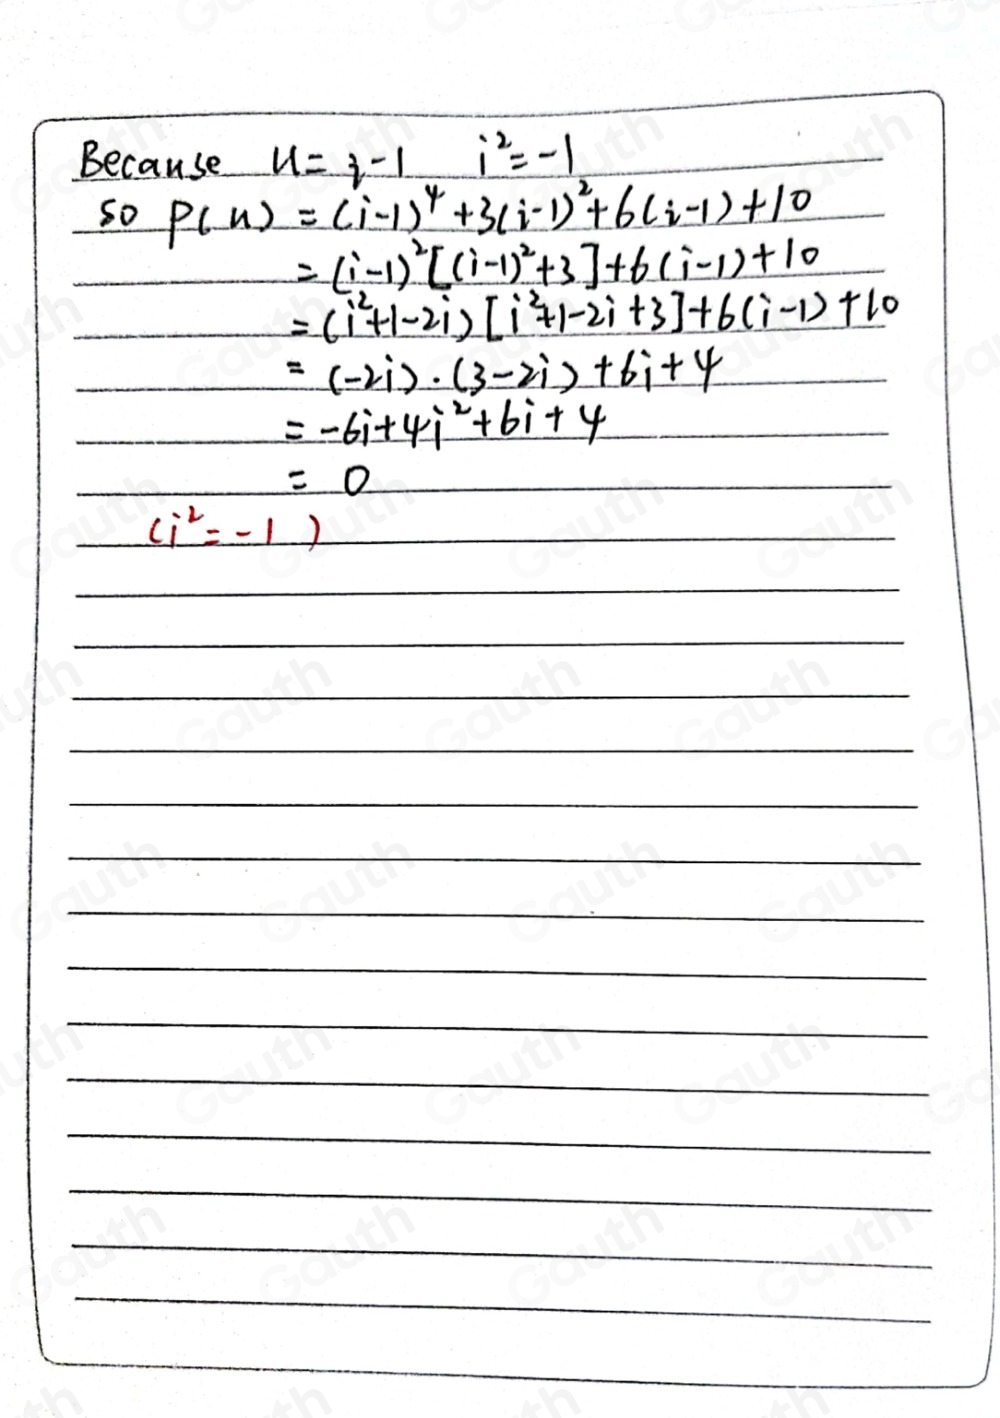 Because u = z-1 i² = -1
so p(u) = (i-1)⁴ + 3(i-1)² + 6(i-1) + 10
= (i-1)² [(i-1)² + 3] + 6(i-1) + 10
= (i² + 1 - 2i) [i² + 1 - 2i + 3] + 6(i-1) + 10
= (-2i) · (3-2i) + 6i + 4
= -6i + 4i² + 6i + 4
= 0
(i² = -1)